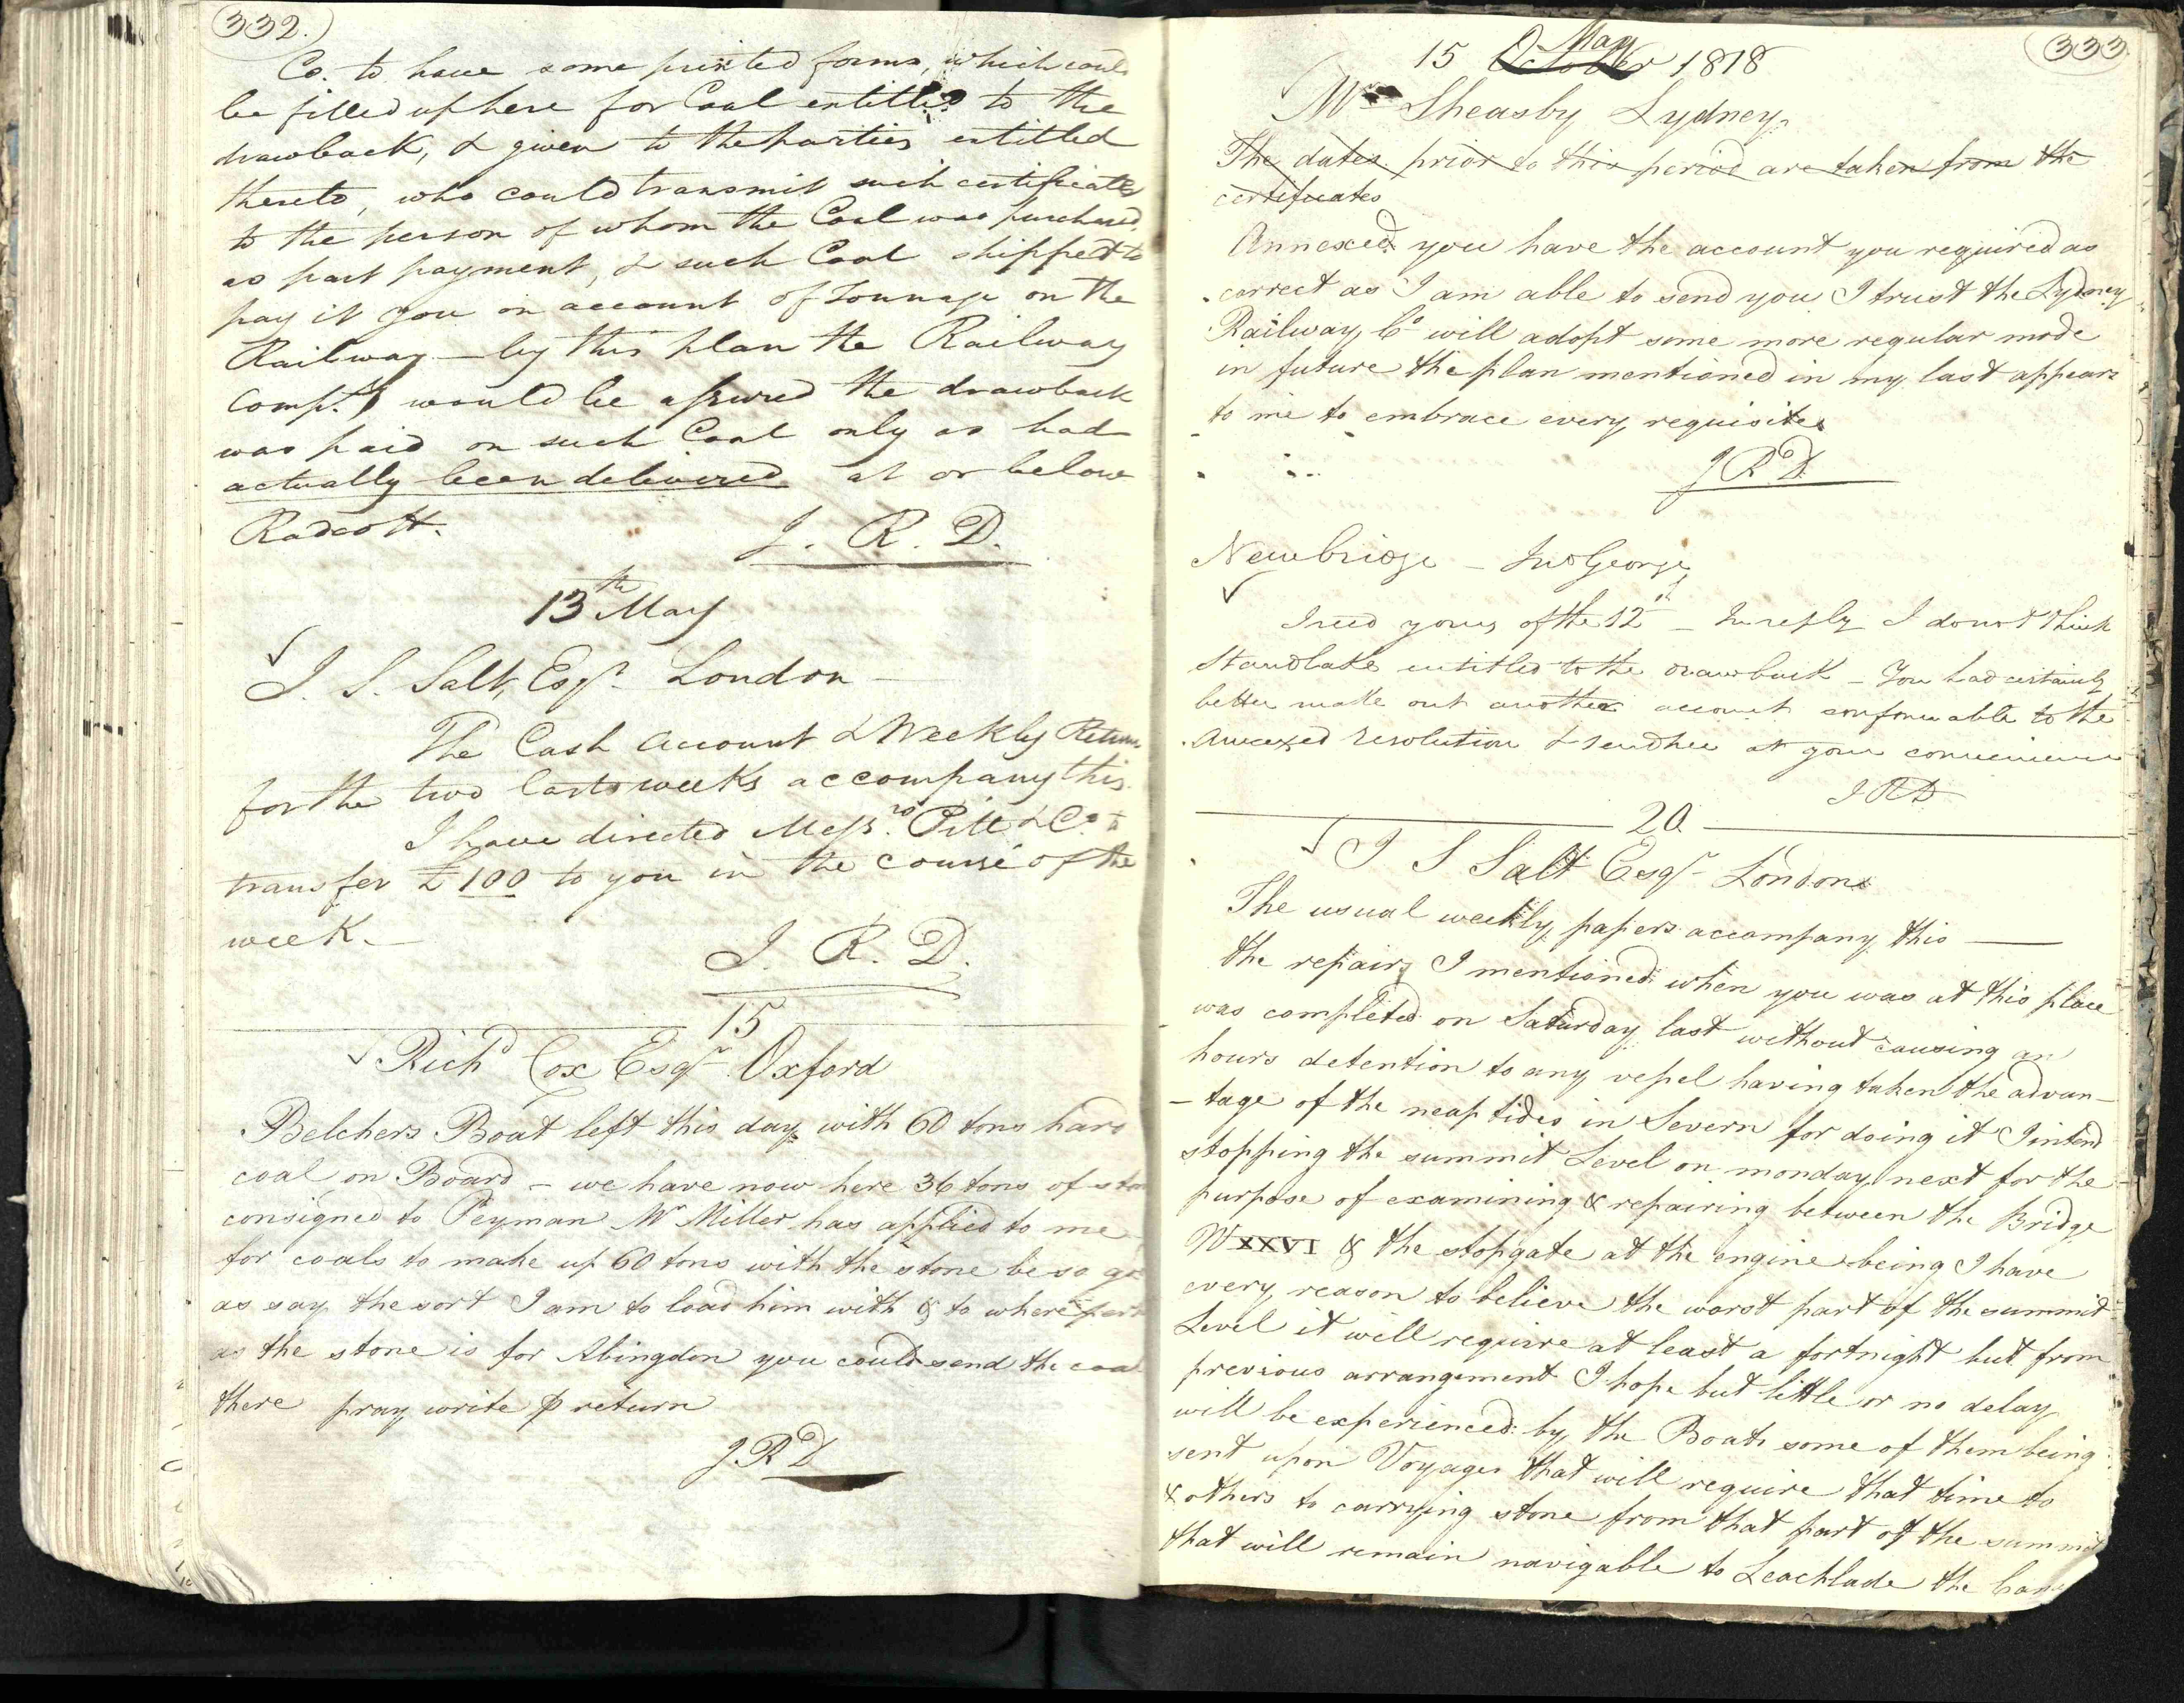 332.
Co. to have some printed forms, which could
be filled up here for Coal entitled to the
drawback, & given to the parties entitled
thereto, who could transmit such certificates
to the person of whom the Coal was purchased,
as part payment, & such Coal shippert to
pay it you on account of Tonnage on the
Railway — by this plan the Railway
Compy. would be assured the drawback
was paid on such Coal only as had
actually been delivered at or below
Radcott.
J. R. D.
13th May
J. S. Salt, Esqr. London —
The Cash Account & Weekly Return
for the two last weeks accompany this.
I have directed Messrs. Pitt & Co. to
transfer £100 to you in the course of the
week. —
J. R. D.
15
Richd Cox Esqr Oxford
Belchers Boat left this day with 60 tons hard
coal on Board — we have now here 36 tons of
consigned to Peyman Mr Miller has applied to me
for coals to make up 60 tons with the stone be so
as say the sort I am to load him with & to where
as the stone is for Abingdon you could send the coal
there pray write p return
JRD
333
15 October May 1818
Mr Sheasby Lydney
The dates prior to this period are taken from the
certificates
Annexed you have the account you required as
correct as I am able to send you I trust the Lydney
Railway Co will adopt some more regular mode
in future the plan mentioned in my last appears
to me to embrace every requisite
JRD
Newbridge — Jno George
I recd yours of the 12th — In reply I do not think
Standlake entitled to the drawback — You had certainly
better make out another account conformable to the
Annexed resolution & send me at your convenience
JRD
20
J S Salt Esqr London
The usual weekly papers accompany this —
the repairs I mentioned when you was at this place
was completed on Saturday last without causing an
hours detention to any vessel having taken the advan-
-tage of the neap tides in Severn for doing it I intend
stopping the summit Level on monday next for the
purpose of examining & repairing between the Bridge
No XXVI & the stopgate at the engine being I have
every reason to believe the worst part of the summit
Level it will require at least a fortnight but from
previous arrangement I hope but little or no delay
will be experienced by the Boats some of them being
sent upon Voyages that will require that time to
& others to carrying stone from that part of the summit
that will remain navigable to Leachlade the